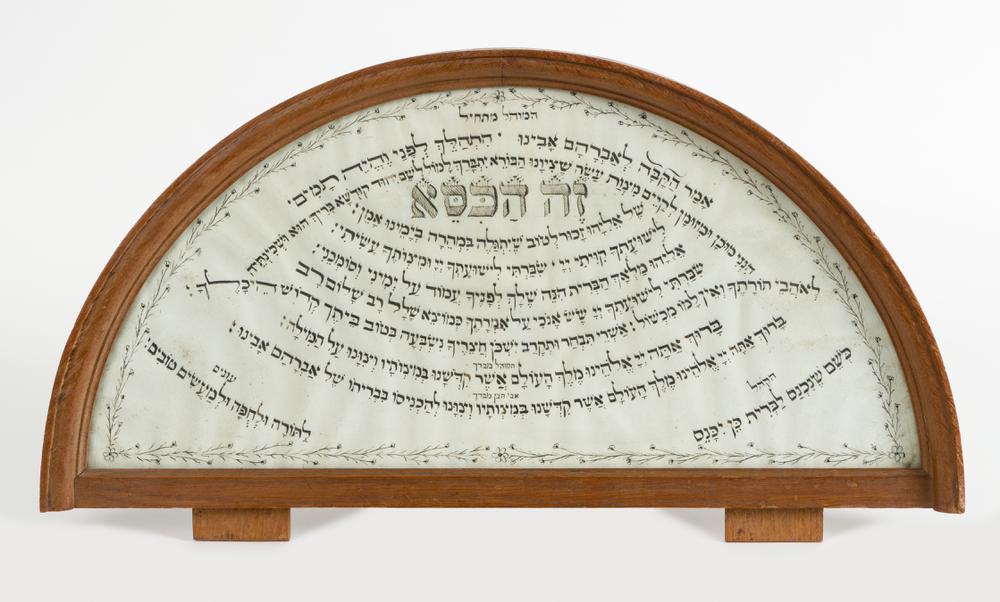 המוהל מתחיל
אמר הקב״ה לאברהם אבינו ׃ התהלך לפני והיה תמים׃
הנני מוכן ומזומן לקיים מצות עשה שציונו הבורא יתברך למול לשם יחוד קודשא בריך הוא ושכינתיה
זֶה הַכִּסֵּא
של אליהו זכור לטוב שיתגלה במהרה בימינו אמן׃
לישועתך קויתי יי׃ שברתי לישועתך יי ומצותיך עשיתי׃
אליהו מלאך הברית הנה שלך לפניך עמוד על ימיני וסומכני׃
שברתי לישועתך יי שש אנכי על אמרתך כמוצא שלל רב שלום רב
לאהבי תורתך ואין למו מכשול׃ אשרי תבחר ותקרב ישכון חצריך נשבעה בטוב ביתך קדוש היכלך
ברוך אתה יי אלהינו מלך העולם אשר קדשנו במצותיו וצונו על המילה׃
המוהל מברך
ברוך אתה יי אלהינו מלך העולם אשר קדשנו במצותיו וצונו להכניסו בבריתו של אברהם אבינו׃
אבי הבן מברך
הקהל
עונים
כשם שנכנס לברית כן יכנס
לתורה ולחפה ולמעשים טובים׃